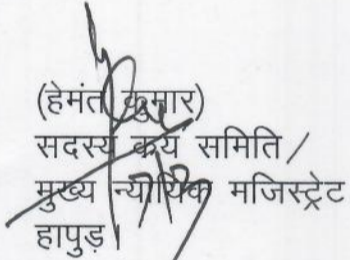 (हेमंत कुमार)
सदस्य क्रय समिति /
मुख्य न्यायिक मजिस्ट्रेट
हापुड़।